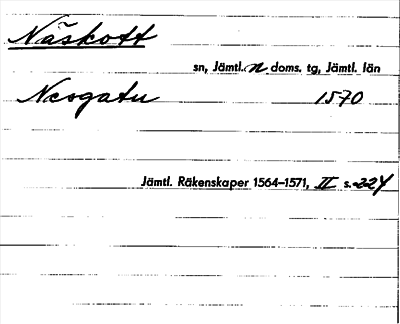 Näskott
sn, Jämtl. n doms. tg, Jämtl. län
Nesgatu 1570
Jämtl. Räkenskaper 1564–1571, II s. 224